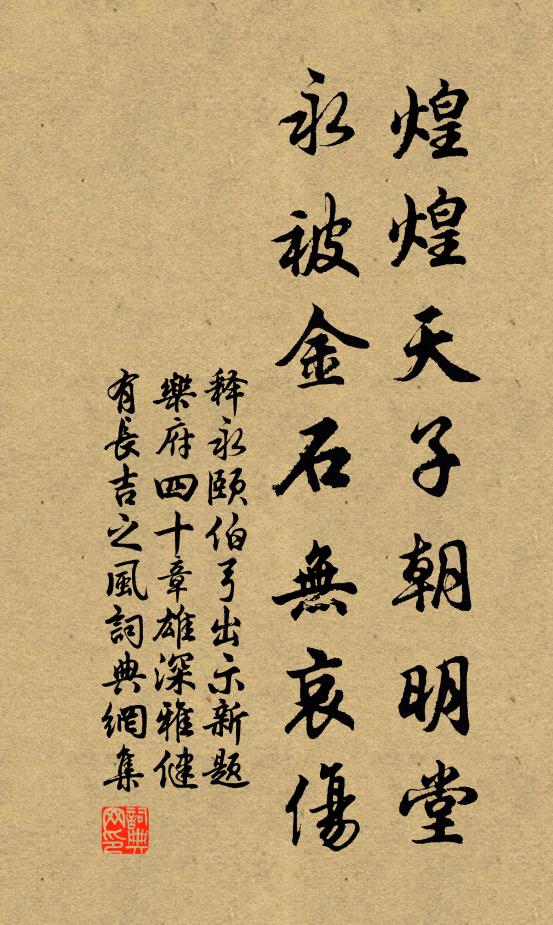 煌煌天子朝明堂
永被金石無哀傷
释永頤伯弓出示新题
樂府四十章雄深雅健
有長吉之風詞典網集
詞典网印